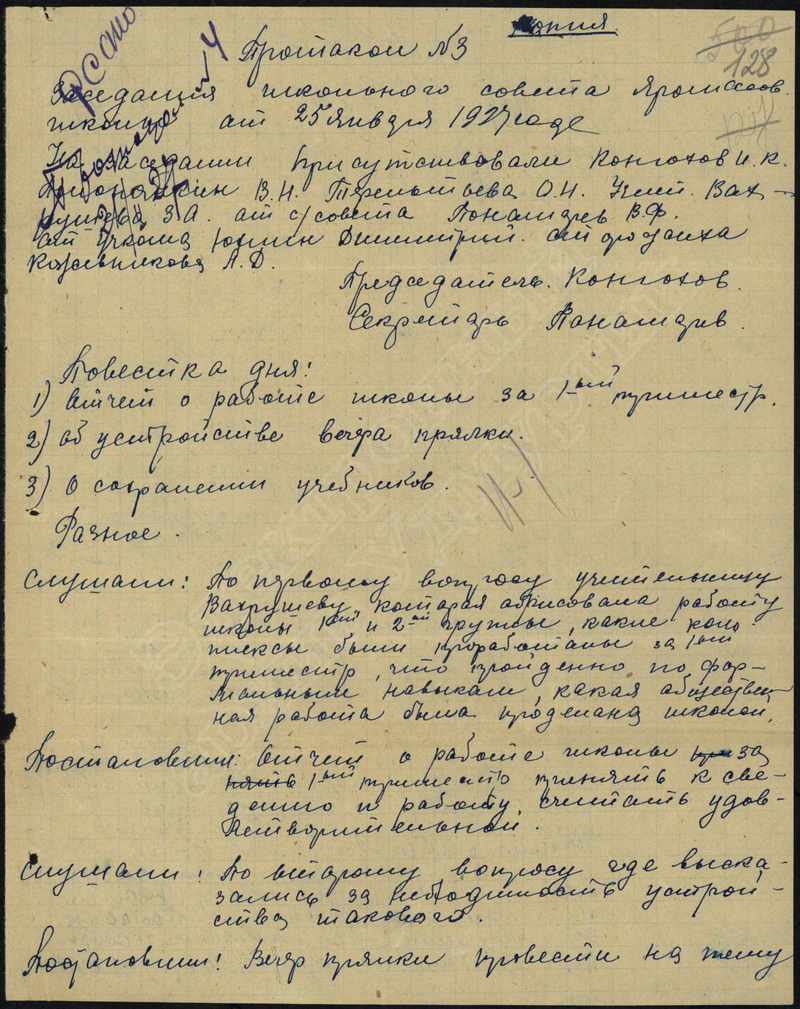 Копия
128
Протокол N3
Заседания школьного совета
школы от 25 января 1927 годе
На заседании присутствовали Конюхов И. К.
В. Н. Терентьева О. Н. Учит. Вах-
рушева З А. от с/совета Понамарев В. Ф.
от Учкома Юшин Димитрий. от
Кожевникова А. Д.
Председатель. Конюхов.
Секретарь Панамарев.
Повестка дня:
1) Отчет о работе школы за 1-ый триместр.
2) Об устройстве вечера прялки.
3) О сохранении учебников.
Разное.
Слушали: По первому вопросу учительницу
Вахрушеву, которая обрисовала работу
школы 1ой и 2ой группы, какие ком-
плексы были проработаны за 1ый
триместр, что пройденно по фор-
мальным навыкам, какая обществен-
ная работа была проделана школой.
Постановили: Отчет о работе школы за
1-ый триместр принять к све-
дению и работу считать удов-
летворительной.
Слушали: По второму вопросу где выска-
зались за необходимость устрой-
ства такового.
Постановили: Вечер прялки провести на тему